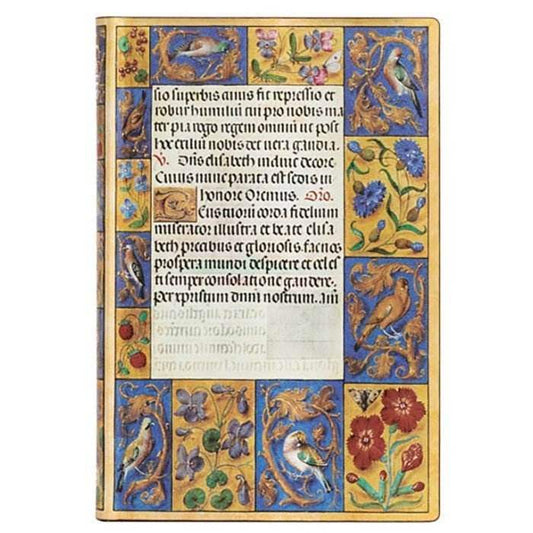 sio superbis cuius fit repressio et
robur humiliū tu pro nobis ma
ter pia rogo regem omniū ut post
hoc exiliū nobis det vera gaudia.
V. Dn̄s elisabeth induit decore.
Cuius nunc parata est sedis in
honore Oremus. Oro.
Deus tuorū corda fidelium
miserator illustra et beate elisa
beth precibus et gloriosis. fac nos
prospera mundi despicere et celes
ti semper consolatione gaudere.
Per xpristum dnm̄ nostrum. Am̄